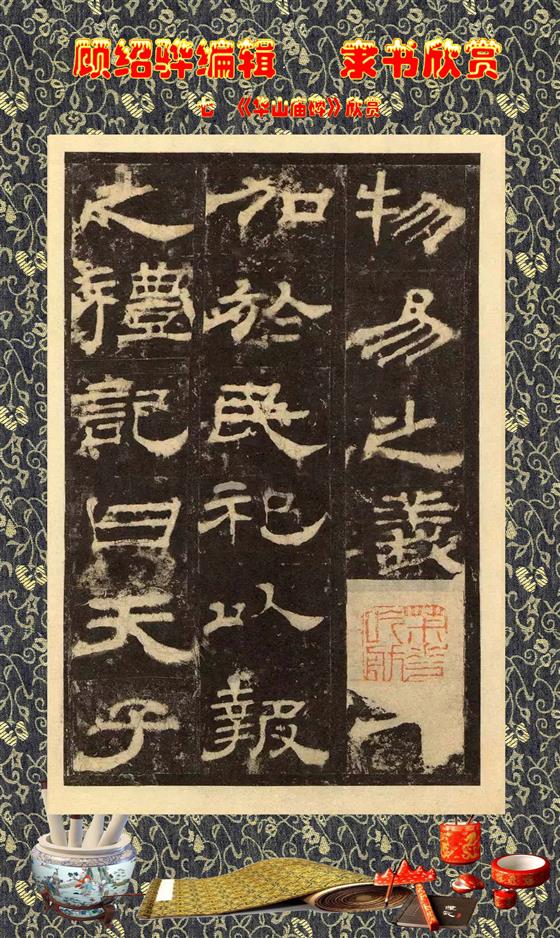 顾绍骅编辑 隶书欣赏
《华山庙碑》欣赏
物易之義
加於民祀以報
之禮記曰天子